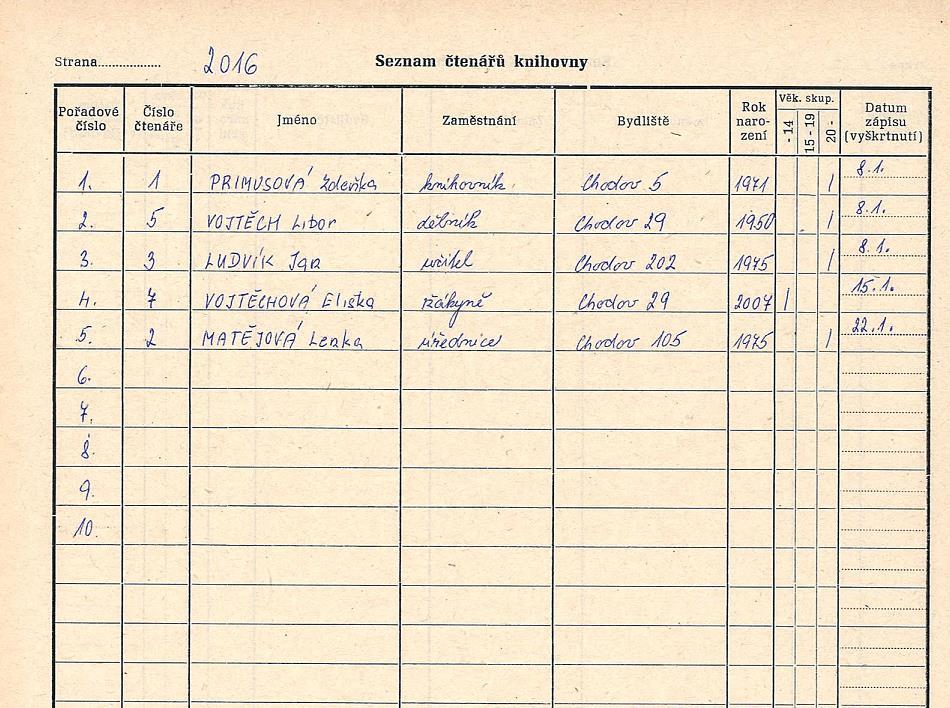 Strana.................. 2016 Seznam čtenářů knihovny
Pořadové číslo Číslo čtenáře Jméno Zaměstnání Bydliště Rok naro- zení Věk. skup. - 14 15 - 19 20 - Datum zápisu (vyškrtnutí)
1. 1 PRIMUSOVÁ Zdeňka knihovník Chodov 5 1971 | 8.1.
2. 5 VOJTĚCH Libor dělník Chodov 29 1950 | 8.1.
3. 3 LUDVÍK Jan učitel Chodov 202 1975 | 8.1.
4. 7 VOJTĚCHOVÁ Eliška žákyně Chodov 29 2007 | 15.1.
5. 2 MATĚJOVÁ Lenka úřednice Chodov 105 1975 | 22.1.
6.
7.
8.
9.
10.